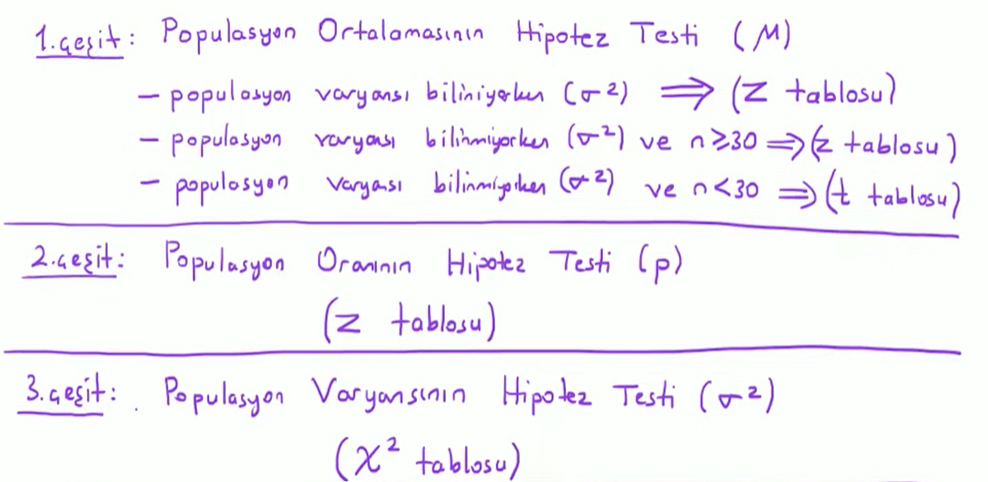 1.çeşit: Populasyon Ortalamasının Hipotez Testi (M)
– populasyon varyansı biliniyorken (σ²) ⟹ (Z tablosu)
– populasyon varyansı bilinmiyorken (σ²) ve n≥30 ⟹ (z tablosu)
– populasyon varyansı bilinmiyorken (σ²) ve n<30 ⟹ (t tablosu)
2.çeşit: Populasyon Oranının Hipotez Testi (p)
(Z tablosu)
3.çeşit: Populasyon Varyansının Hipotez Testi (σ²)
(χ² tablosu)